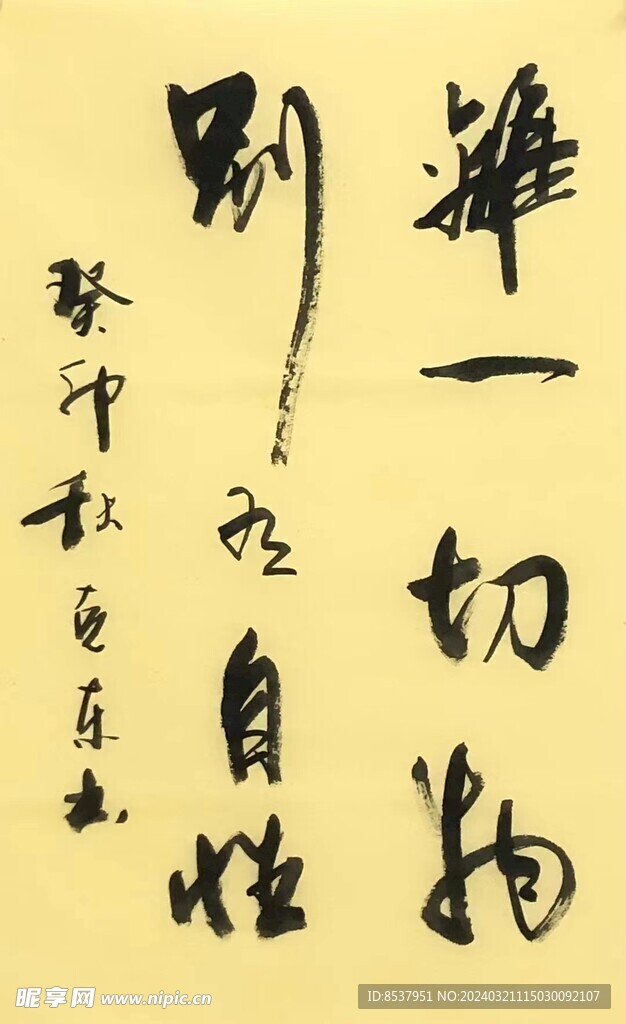 離一切物
别有自性
癸卯秋克东书
昵享网 www.nipic.cn
ID:8537951 NO:20240321115030092107